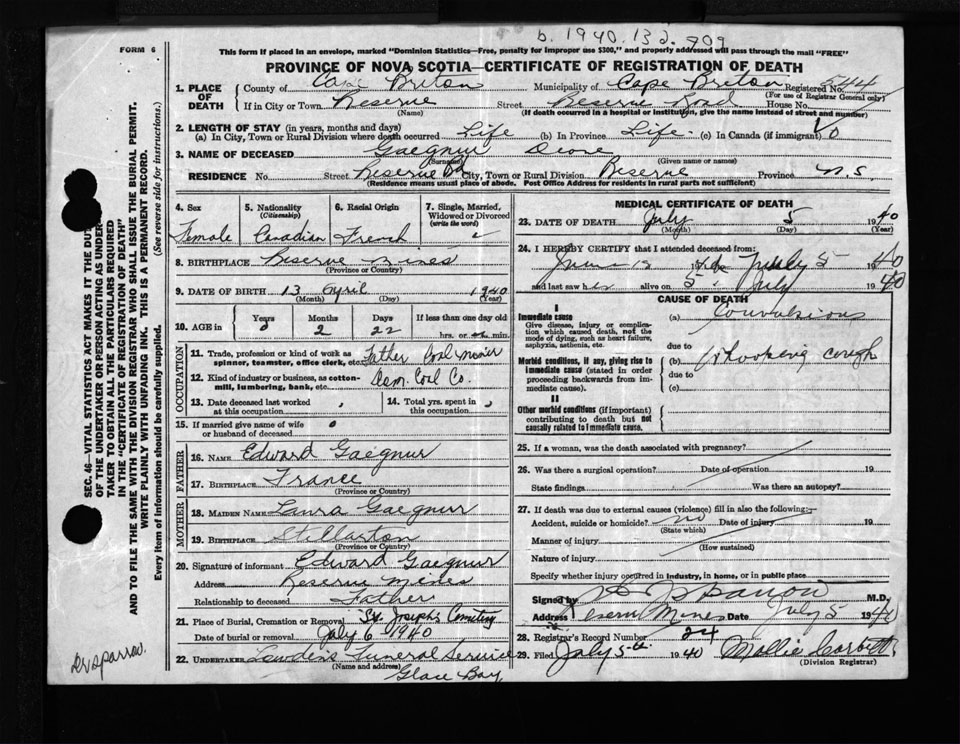 b. 1940. 132. 709
FORM 6
This form if placed in an envelope, marked "Dominion Statistics—Free, penalty for improper use $300," and properly addressed will pass through the mail "FREE"
PROVINCE OF NOVA SCOTIA—CERTIFICATE OF REGISTRATION OF DEATH
1. PLACE OF DEATH
County of Cape Breton Municipality of Cape Breton Registered No.
(For use of Registrar General only)
If in City or Town Reserve Street Reserve Road House No.
(Name) (If death occurred in a hospital or institution, give the name instead of street and number)
2. LENGTH OF STAY (in years, months and days)
(a) In City, Town or Rural Division where death occurred Life (b) In Province Life (c) In Canada (if immigrant) 0
3. NAME OF DECEASED Gaegnur
(Surname) (Given name or names)
RESIDENCE No. Street Reserve Rd City, Town or Rural Division Reserve Province N.S.
(Residence means usual place of abode. Post Office Address for residents in rural parts not sufficient)
4. Sex
Female
5. Nationality
(Citizenship)
Canadian
6. Racial Origin
French
7. Single, Married, Widowed or Divorced
(write the word)
8. BIRTHPLACE Reserve Mines
(Province or Country)
9. DATE OF BIRTH 13 April 1940
(Month) (Day) (Year)
10. AGE in
Years Months Days If less than one day old
0 2 22 hrs. or min.
OCCUPATION
11. Trade, profession or kind of work as spinner, teamster, office clerk, etc. Father Coal Miner
12. Kind of industry or business, as cotton-mill, lumbering, bank, etc. Dom. Coal Co.
13. Date deceased last worked at this occupation
14. Total yrs. spent in this occupation
15. If married give name of wife or husband of deceased 0
FATHER
16. NAME Edward Gaegnur
17. BIRTHPLACE France
(Province or Country)
MOTHER
18. MAIDEN NAME Laura Gaegnur
19. BIRTHPLACE Stellarton
(Province or Country)
20. Signature of informant Edward Gaegnur
Address Reserve Mines
Relationship to deceased Father
21. Place of Burial, Cremation or Removal St. Joseph's Cemetery
Date of burial or removal July 6 1940
22. UNDERTAKER Funeral Service
(Name and address)
Glace Bay
MEDICAL CERTIFICATE OF DEATH
23. DATE OF DEATH July 5 1940
(Month) (Day) (Year)
24. I HEREBY CERTIFY that I attended deceased from:
June to July 5 1940
and last saw her alive on 5 July 1940
CAUSE OF DEATH
I
Immediate cause
Give disease, injury or complication which caused death, not the mode of dying, such as heart failure, asphyxia, asthenia, etc.
(a) Convulsions
due to
Morbid conditions, if any, giving rise to immediate cause (stated in order proceeding backwards from immediate cause).
(b) Whooping cough
due to
(c)
II
Other morbid conditions (if important) contributing to death but not causally related to immediate cause.
25. If a woman, was the death associated with pregnancy?
26. Was there a surgical operation? Date of operation 19
State findings Was there an autopsy?
27. If death was due to external causes (violence) fill in also the following:—
Accident, suicide or homicide? no Date of injury 19
(State which)
Manner of injury
(How sustained)
Nature of injury
Specify whether injury occurred in industry, in home, or in public place
Signed by M.D.
Address Reserve Mines Date July 5 1940
28. Registrar's Record Number 24
29. Filed July 5th 1940 Mollie Corbett
(Division Registrar)
SEC. 46—VITAL STATISTICS ACT MAKES IT THE DUTY
OF THE UNDERTAKER OR PERSON ACTING AS UNDERTAKER
TO OBTAIN ALL THE PARTICULARS REQUIRED
IN THE "CERTIFICATE OF REGISTRATION OF DEATH"
AND TO FILE THE SAME WITH THE DIVISION REGISTRAR WHO SHALL ISSUE THE BURIAL PERMIT.
WRITE PLAINLY WITH UNFADING INK. THIS IS A PERMANENT RECORD.
Every item of information should be carefully supplied. (See reverse side for instructions.)
Dr Sparrow.